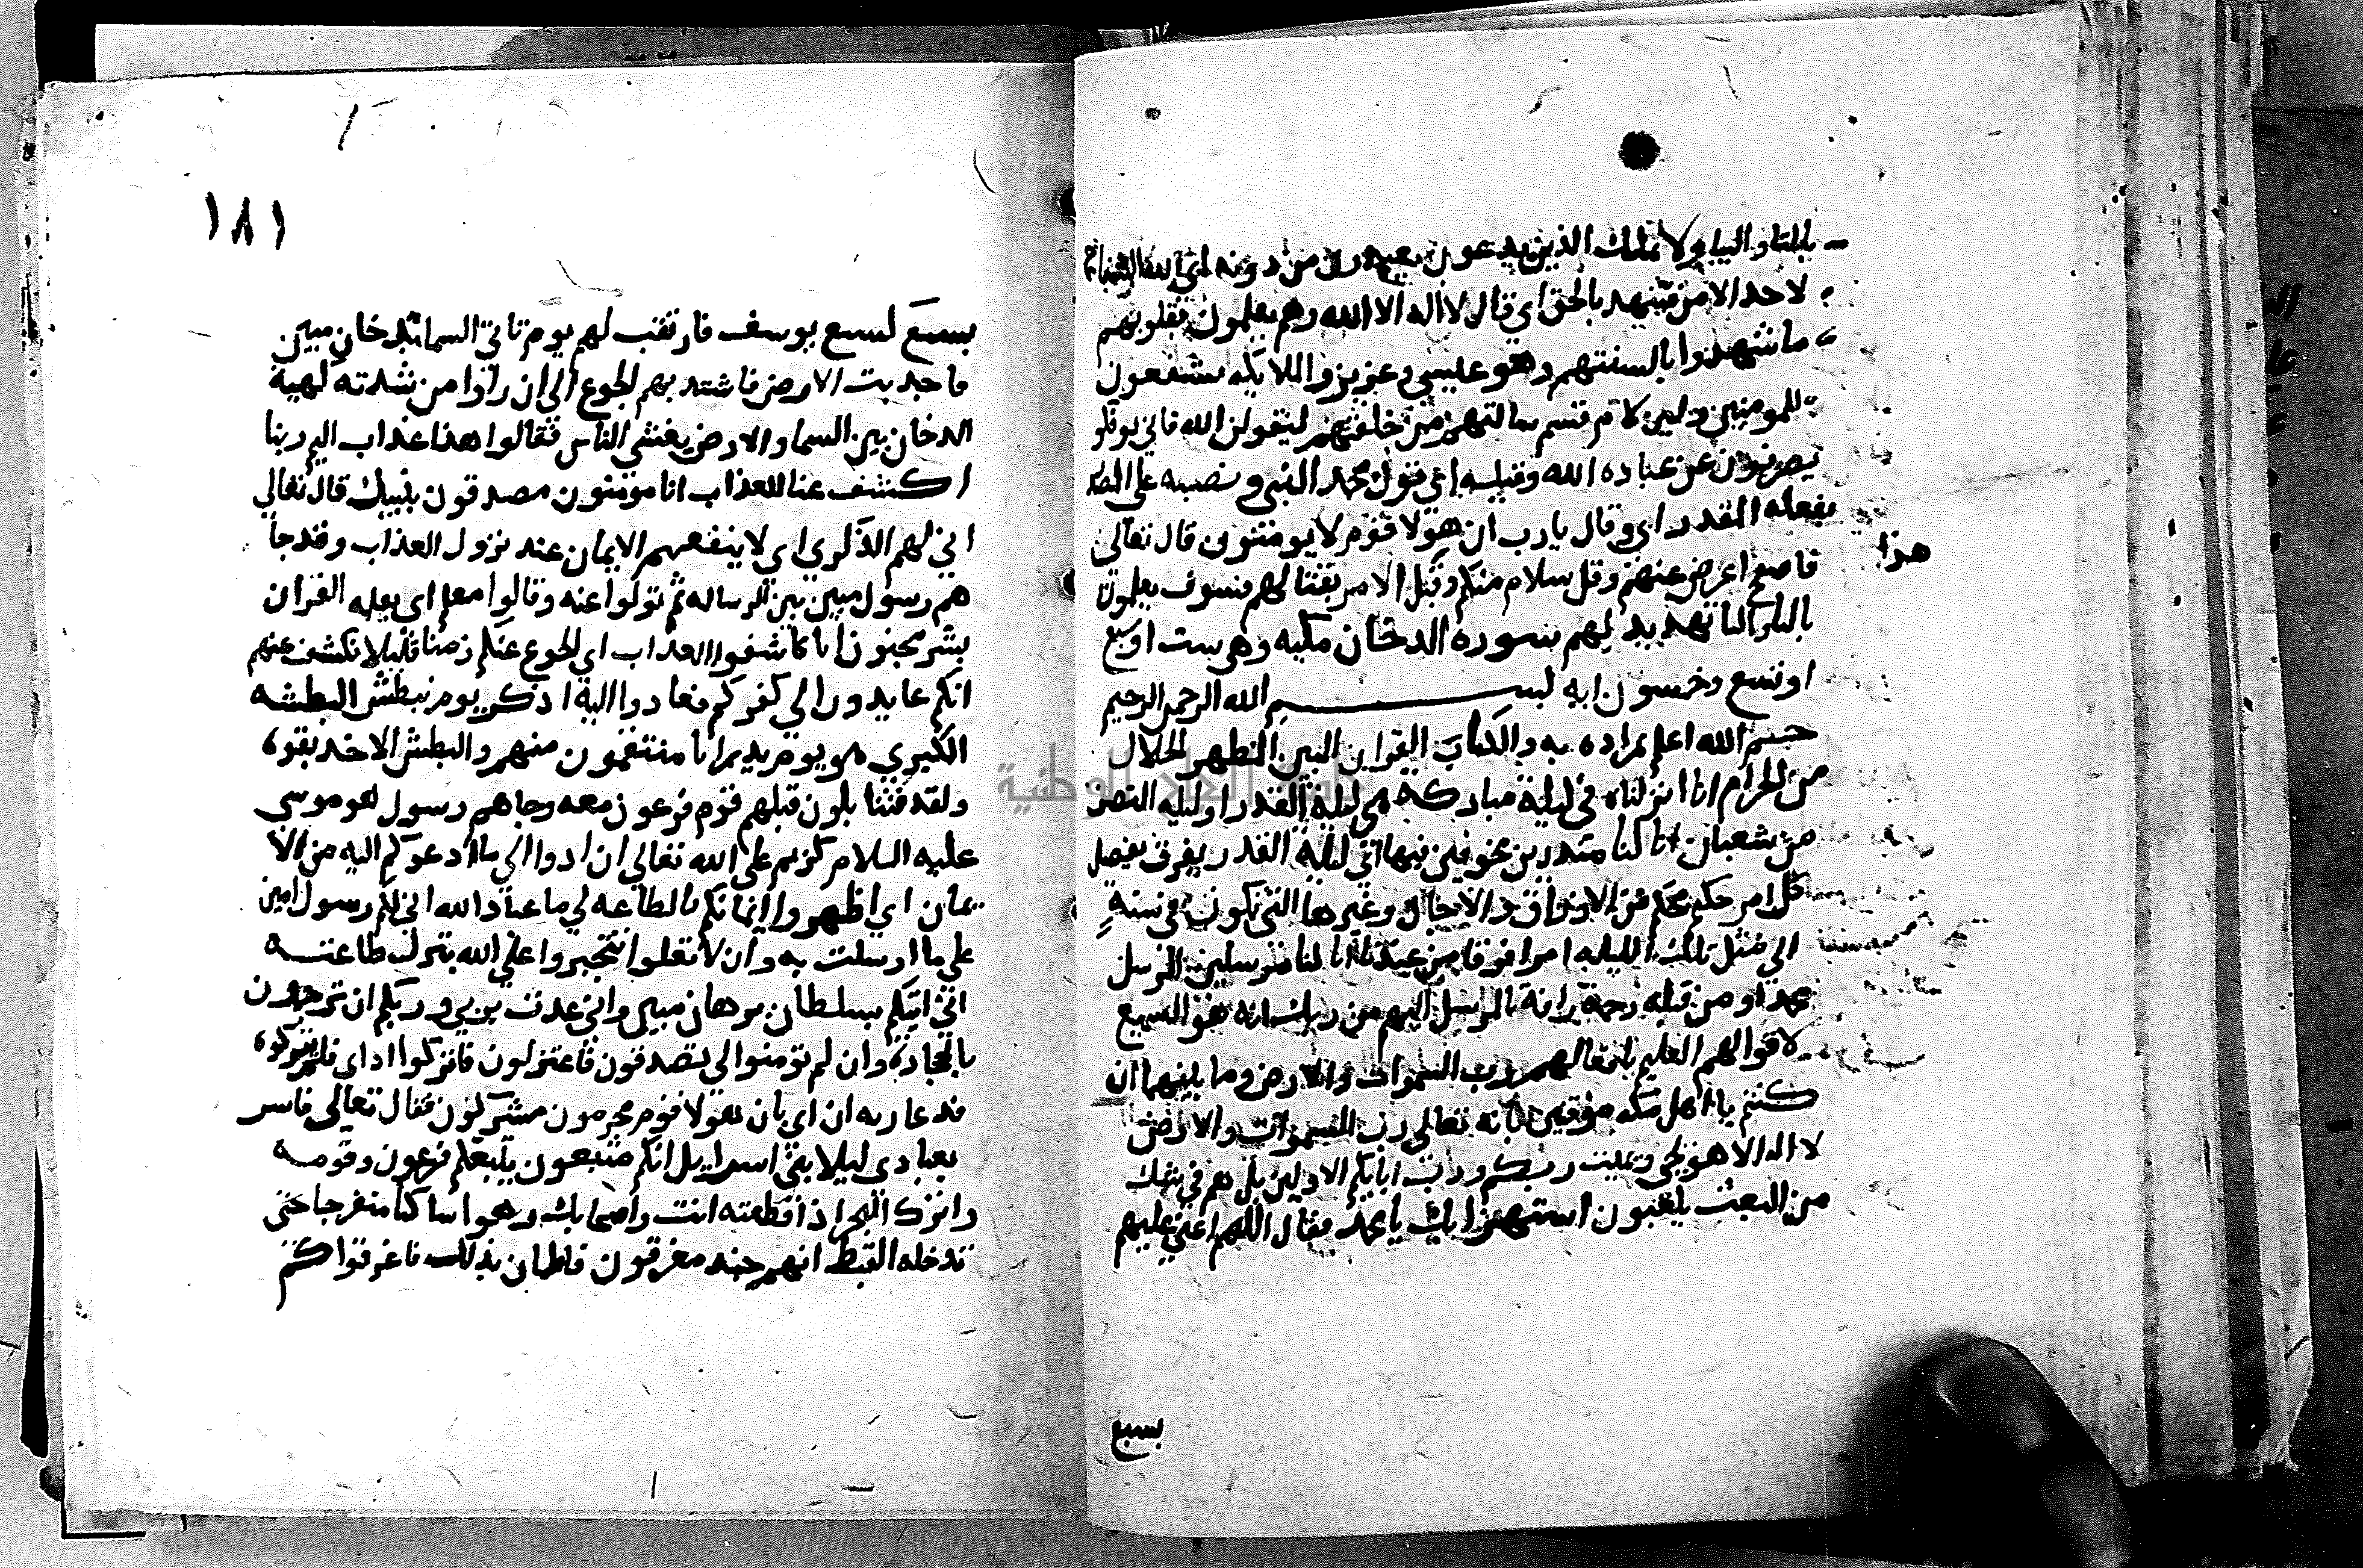 بالتاء والياء ولا يملك الذين يدعون يعبدون من دونه اي الله الشفاعة
لاحد الا من شهد بالحق اي قال لا اله الا الله وهم يعلمون بقلوبهم
ما شهدوا بالسنتهم وهو عيسي وعزيز والملايكه يشفعون
للمومنين ولين لام قسم سالتهم من خلقهم ليقولن الله فاني يوفكو
يصرفون عن عباده الله وقيله اي قول محمد النبي ونصبه علي المصد
بفعله المقدر اي وقال يارب ان هولا قوم لا يومنون قال تعالي
هذا
فاصفح اعرض عنهم وقل سلام منكم وقبل الامر بقتالهم فسوف يعلمون
بالياء والتا تهديد لهم سوره الدخان مكيه وهي ست او سبع
او تسع وخمسون ايه بسم الله الرحمن الرحيم
حم الله اعلم بمراده به والكتاب القران المبين المظهر الحلال
من الحرام انا انزلناه في ليلة مباركة هي ليلة القدر او ليله النصف
من شعبان انا كنا منذرين مخوفين فيها اي ليلة القدر يفرق يفصل
كل امر حكيم محكم من الارزاق والاجال وغيرها التي تكون في سنة
الي مثل تلك الليله امرا فرقا من عندنا انا كنا مرسلين الرسل
محمدا ومن قبله رحمة رافة بالمرسل اليهم من ربك انه هو السميع
لاقوالهم العليم بافعالهم رب السموات والارض وما بينهما ان
كنتم يا اهل مكه موقنين بانه تعالي رب السموات والارض
لا اله الا هو يحي ويميت ربكم ورب ابايكم الاولين بل هم في شك
من البعث يلعبون استهزا بك يا محمد فقال اللهم اعني عليهم
بسبع
١٨١
بسبع كسبع يوسف فارتقب لهم يوم تاتي السما بدخان مبين
فاجدبت الارض فاشتد بهم الجوع الي ان راوا من شدته كهية
الدخان بين السما والارض يغشي الناس فقالوا هذا عذاب اليم ربنا
اكشف عنا العذاب انا مومنون مصدقون بنبيك قال تعالي
اني لهم الذكري اي لا ينفعهم الايمان عند نزول العذاب وقد جا
هم رسول مبين بين الرساله ثم تولوا عنه وقالوا معلم اي يعلمه القران
بشر مجنون انا كاشفوا العذاب اي الجوع عنكم زمنا قليلا نكشف عنهم
انكم عايدون الي كفركم فعادوا اليه اذكر يوم نبطش البطشه
الكبري هو يوم بدر انا منتقمون منهم والبطش الاخذ بقوة
ولقد فتنا بلون قبلهم قوم فرعون معه وجاهم رسول هو موسي
عليه السلام كريم علي الله تعالي ان ادوا الي ما ادعوكم اليه من الا
يمان اي اظهروا ايمانكم بالطاعه لي يا عباد الله اني لكم رسول امين
علي ما ارسلت به وان لا تعلوا تتجبروا علي الله بترك طاعته
اني اتيكم بسلطان برهان مبين واني عدت بربي وربكم ان ترجمون
بالحجارة وان لم تومنوا لي تصدقون فاعتزلون فاتركوا اذاي فلم يتركوه
فدعا ربه ان اي بان هولا قوم مجرمون مشركون فقال تعالي فاسر
بعبادي ليلا بني اسرايل انكم متبعون يتبعكم فرعون وقومه
واترك البحر اذا قطعته انت واصحابك رهوا ساكنا منفرجا حتي
تدخله القبط انهم جند مغرقون فاطمان بذلك فاغرقوا كم